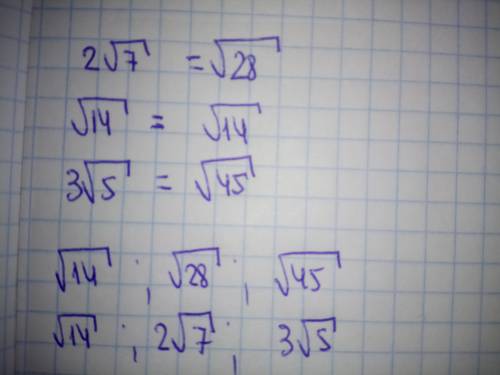 2√7 = √28
√14 = √14
3√5 = √45
√14 ; √28 ; √45
√14 ; 2√7 ; 3√5